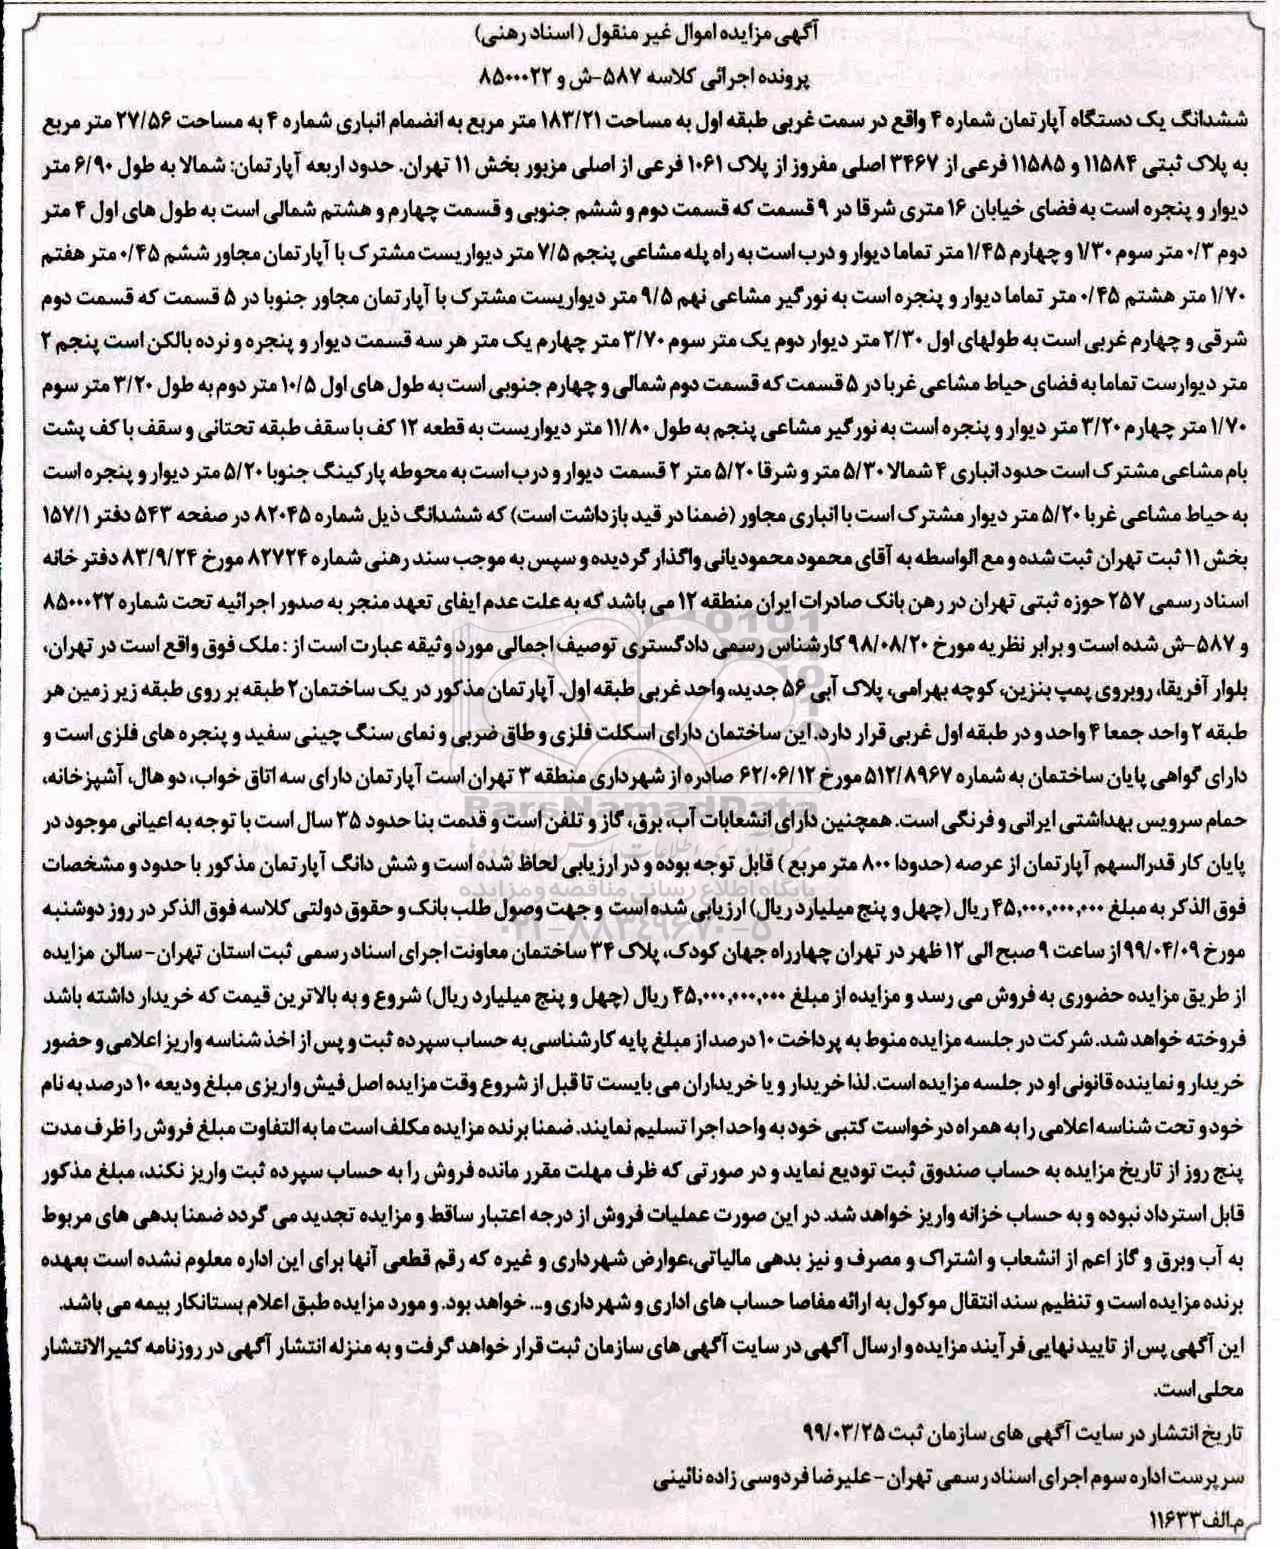 آگهی مزایده اموال غیر منقول (اسناد رهنی)
پرونده اجرائی کلاسه ۵۸۷-ش و ۸۵۰۰۰۲۲
ششدانگ یک دستگاه آپارتمان شماره ۴ واقع در سمت غربی طبقه اول به مساحت ۱۸۳/۲۱ متر مربع به انضمام انباری شماره ۴ به مساحت ۲۷/۵۶ متر مربع
به پلاک ثبتی ۱۱۵۸۴ و ۱۱۵۸۵ فرعی از ۳۴۶۷ اصلی مفروز از پلاک ۱۰۶۱ فرعی از اصلی مزبور بخش ۱۱ تهران. حدود اربعه آپارتمان: شمالا به طول ۶/۹۰ متر
دیوار و پنجره است به فضای خیابان ۱۶ متری شرقا در ۹ قسمت که قسمت دوم و ششم جنوبی و قسمت چهارم و هشتم شمالی است به طول های اول ۴ متر
دوم ۰/۳ متر سوم ۱/۳۰ و چهارم ۱/۴۵ متر تماما دیوار و درب است به راه پله مشاعی پنجم ۷/۵ متر دیواریست مشترک با آپارتمان مجاور ششم ۰/۴۵ متر هفتم
۱/۷۰ متر هشتم ۰/۴۵ متر تماما دیوار و پنجره است به نورگیر مشاعی نهم ۹/۵ متر دیواریست مشترک با آپارتمان مجاور جنوبا در ۵ قسمت که قسمت دوم
شرقی و چهارم غربی است به طولهای اول ۲/۳۰ متر دیوار دوم یک متر سوم ۳/۷۰ متر چهارم یک متر هر سه قسمت دیوار و پنجره و نرده بالکن است پنجم ۲
متر دیوارست تماما به فضای حیاط مشاعی غربا در ۵ قسمت که قسمت دوم شمالی و چهارم جنوبی است به طول های اول ۱۰/۵ متر دوم به طول ۳/۲۰ متر سوم
۱/۷۰ متر چهارم ۳/۲۰ متر دیوار و پنجره است به نورگیر مشاعی پنجم به طول ۱۱/۸۰ متر دیواریست به قطعه ۱۲ کف با سقف طبقه تحتانی و سقف با کف پشت
بام مشاعی مشترک است حدود انباری ۴ شمالا ۵/۳۰ متر و شرقا ۵/۲۰ متر ۲ قسمت دیوار و درب است به محوطه پارکینگ جنوبا ۵/۲۰ متر دیوار و پنجره است
به حیاط مشاعی غربا ۵/۲۰ متر دیوار مشترک است با انباری مجاور (ضمنا در قید بازداشت است) که ششدانگ ذیل شماره ۸۲۰۴۵ در صفحه ۵۴۳ دفتر ۱۵۷/۱
بخش ۱۱ ثبت تهران ثبت شده و مع الواسطه به آقای محمود محمودیانی واگذار گردیده و سپس به موجب سند رهنی شماره ۸۲۷۲۴ مورخ ۸۳/۹/۲۴ دفتر خانه
اسناد رسمی ۲۵۷ حوزه ثبتی تهران در رهن بانک صادرات ایران منطقه ۱۲ می باشد که به علت عدم ایفای تعهد منجر به صدور اجرائیه تحت شماره ۸۵۰۰۰۲۲
و ۵۸۷-ش شده است و برابر نظریه مورخ ۹۸/۰۸/۲۰ کارشناس رسمی دادگستری توصیف اجمالی مورد وثیقه عبارت است از : ملک فوق واقع است در تهران،
بلوار آفریقا، روبروی پمپ بنزین، کوچه بهرامی، پلاک آبی ۵۶ جدید، واحد غربی طبقه اول. آپارتمان مذکور در یک ساختمان ۲ طبقه بر روی طبقه زیر زمین هر
طبقه ۲ واحد جمعا ۴ واحد و در طبقه اول غربی قرار دارد. این ساختمان دارای اسکلت فلزی و طاق ضربی و نمای سنگ چینی سفید و پنجره های فلزی است و
دارای گواهی پایان ساختمان به شماره ۵۱۲/۸۹۶۷ مورخ ۶۲/۰۶/۱۲ صادره از شهرداری منطقه ۳ تهران است آپارتمان دارای سه اتاق خواب، دو هال، آشپزخانه،
حمام سرویس بهداشتی ایرانی و فرنگی است. همچنین دارای انشعابات آب، برق، گاز و تلفن است و قدمت بنا حدود ۳۵ سال است با توجه به اعیانی موجود در
پایان کار قدرالسهم آپارتمان از عرصه (حدودا ۸۰۰ متر مربع ) قابل توجه بوده و در ارزیابی لحاظ شده است و شش دانگ آپارتمان مذکور با حدود و مشخصات
فوق الذکر به مبلغ ۴۵,۰۰۰,۰۰۰,۰۰۰ ریال (چهل و پنج میلیارد ریال) ارزیابی شده است و جهت وصول طلب بانک و حقوق دولتی کلاسه فوق الذکر در روز دوشنبه
مورخ ۹۹/۰۴/۰۹ از ساعت ۹ صبح الی ۱۲ ظهر در تهران چهارراه جهان کودک، پلاک ۳۴ ساختمان معاونت اجرای اسناد رسمی ثبت استان تهران- سالن مزایده
از طریق مزایده حضوری به فروش می رسد و مزایده از مبلغ ۴۵,۰۰۰,۰۰۰,۰۰۰ ریال (چهل و پنج میلیارد ریال) شروع و به بالاترین قیمت که خریدار داشته باشد
فروخته خواهد شد. شرکت در جلسه مزایده منوط به پرداخت ۱۰ درصد از مبلغ پایه کارشناسی به حساب سپرده ثبت و پس از اخذ شناسه واریز اعلامی و حضور
خریدار و نماینده قانونی او در جلسه مزایده است. لذا خریدار و یا خریداران می بایست تا قبل از شروع وقت مزایده اصل فیش واریزی مبلغ ودیعه ۱۰ درصد به نام
خود و تحت شناسه اعلامی را به همراه درخواست کتبی خود به واحد اجرا تسلیم نمایند. ضمنا برنده مزایده مکلف است ما به التفاوت مبلغ فروش را ظرف مدت
پنج روز از تاریخ مزایده به حساب صندوق ثبت تودیع نماید و در صورتی که ظرف مهلت مقرر مانده فروش را به حساب سپرده ثبت واریز نکند، مبلغ مذکور
قابل استرداد نبوده و به حساب خزانه واریز خواهد شد. در این صورت عملیات فروش از درجه اعتبار ساقط و مزایده تجدید می گردد ضمنا بدهی های مربوط
به آب وبرق و گاز اعم از انشعاب و اشتراک و مصرف و نیز بدهی مالیاتی،عوارض شهرداری و غیره که رقم قطعی آنها برای این اداره معلوم نشده است بعهده
برنده مزایده است و تنظیم سند انتقال موکول به ارائه مفاصا حساب های اداری و شهرداری و... خواهد بود. و مورد مزایده طبق اعلام بستانکار بیمه می باشد.
این آگهی پس از تایید نهایی فرآیند مزایده و ارسال آگهی در سایت آگهی های سازمان ثبت قرار خواهد گرفت و به منزله انتشار آگهی در روزنامه کثیرالانتشار
محلی است.
تاریخ انتشار در سایت آگهی های سازمان ثبت ۹۹/۰۳/۲۵
سرپرست اداره سوم اجرای اسناد رسمی تهران - علیرضا فردوسی زاده نائینی
م.الف ۱۱۶۳۳
ParsNamadData
پایگاه اطلاع رسانی مناقصه و مزایده
۰۲۱-۸۸۳۴۹۶۷۰-۵